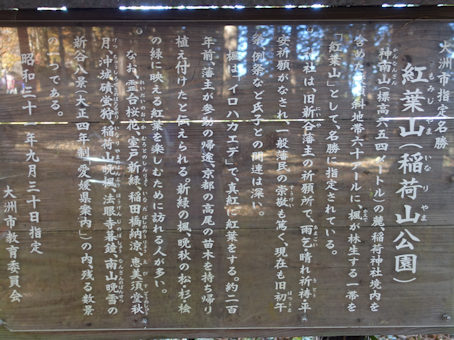 大洲市指定名勝
紅葉山（稲荷山公園）
もみじやま いなりやま
神南山（標高六五四メートル）の麓、稲荷神社境内を
含めた 斜地帯六十アールに、楓が林生する一帯を
「紅葉山」として、名勝に指定されている。
社は、旧新谷藩主の祈願所で、雨乞、晴れ祈祷、平
安祈願がなされ、一般藩民の崇敬も篤く、現在も旧初午
祭、例祭など氏子との関連は深い。
楓は「イロハカエデ」で、真紅に紅葉をする。約二百
年前藩主が参勤の帰途、京都の高尾の苗木を持ち帰り
植え付けたと伝えられる新緑の楓、晩秋の松・杉・桧
の緑に映える紅葉を楽しむために訪れる人が多い。
なお、盤谷桜花、室戸新緑、稲田橋納涼、恵美須堂秋
月、沖城磧堂狩、稲荷山晩楓、法眼寺暮鐘、南山晩雪の
新谷八景（大正四年刊愛媛県案内）の内残る数景
の一つである。
昭和三十 年九月三十日指定
大洲市教育委員会